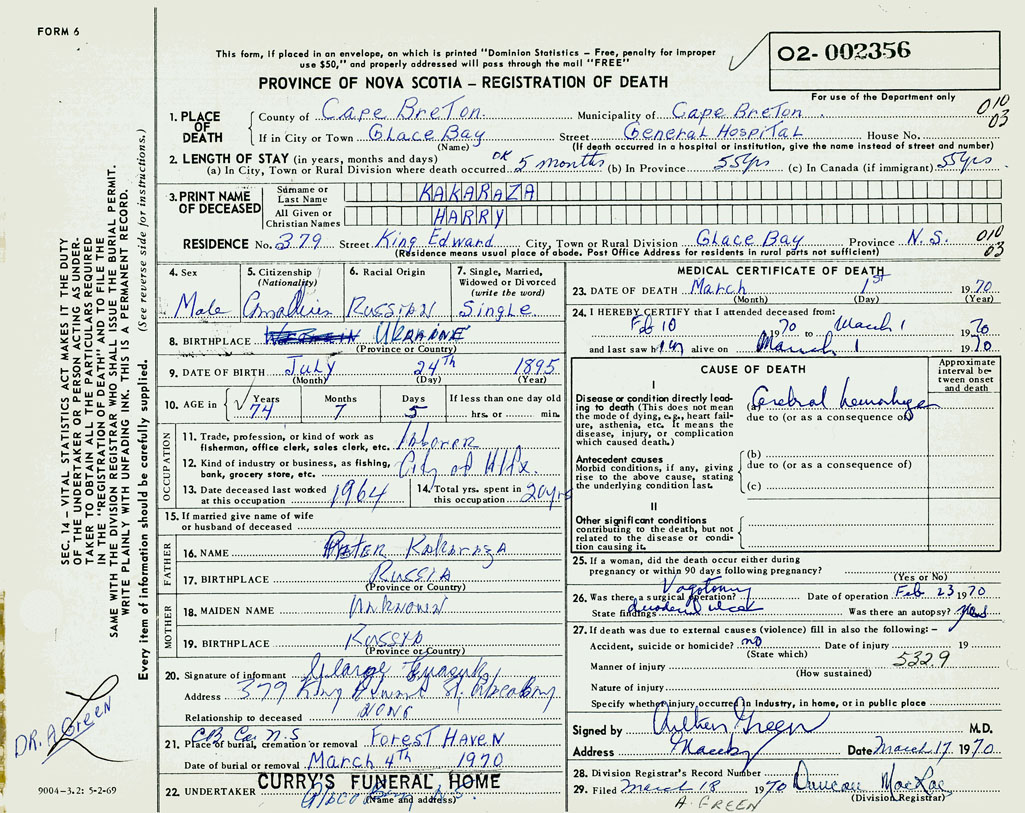 FORM 6
This form, if placed in an envelope, on which is printed "Dominion Statistics – Free, penalty for improper
use $50," and properly addressed will pass through the mail "FREE"
02-002356
PROVINCE OF NOVA SCOTIA – REGISTRATION OF DEATH
For use of the Department only
010
03
1. PLACE OF DEATH
County of Cape Breton. Municipality of Cape Breton.
If in City or Town Glace Bay Street General Hospital House No.
(Name) (If death occurred in a hospital or institution, give the name instead of street and number)
2. LENGTH OF STAY (in years, months and days)
(a) In City, Town or Rural Division where death occurred OK 5 months (b) In Province 55yrs (c) In Canada (if immigrant) 55yrs
3. PRINT NAME OF DECEASED
Surname or Last Name KAKARAZA
All Given or Christian Names HARRY
RESIDENCE No. 379 Street King Edward City, Town or Rural Division Glace Bay Province N.S. 010
03
(Residence means usual place of abode. Post Office Address for residents in rural parts not sufficient)
4. Sex 5. Citizenship (Nationality) 6. Racial Origin 7. Single, Married, Widowed or Divorced (write the word)
Male Canadian RUSSIAN Single
8. BIRTHPLACE UKRAINE
(Province or Country)
9. DATE OF BIRTH July 24th 1895
(Month) (Day) (Year)
10. AGE in Years Months Days If less than one day
74 7 5 hrs. or min.
OCCUPATION
11. Trade, profession, or kind of work as
fisherman, office clerk, sales clerk, etc. Laborer
12. Kind of industry or business, as fishing,
bank, grocery store, etc. City of Hlfx.
13. Date deceased last worked
at this occupation 1964
14. Total yrs. spent in
this occupation 20yrs
15. If married give name of wife
or husband of deceased
FATHER
16. NAME Peter Kakaraza
17. BIRTHPLACE Russia
(Province or Country)
MOTHER
18. MAIDEN NAME Unknown
19. BIRTHPLACE Russia
(Province or Country)
20. Signature of informant George
Address 379 King Edward St. Glace Bay
Relationship to deceased NONE
C.B. Co. N.S.
21. Place of burial, cremation or removal Forest Haven
Date of burial or removal March 4th 1970
22. UNDERTAKER CURRY'S FUNERAL HOME
Glace Bay N.S.
(Name and address)
MEDICAL CERTIFICATE OF DEATH
23. DATE OF DEATH March 1st 1970
(Month) (Day) (Year)
24. I HEREBY CERTIFY that I attended deceased from:
Feb 10 1970 to March 1 1970
and last saw him alive on March 1 1970
CAUSE OF DEATH
Approximate interval between onset and death
I
Disease or condition directly leading to death (This does not mean the mode of dying, e.g., heart failure, asthenia, etc. It means the disease, injury, or complication which caused death.)
(a) Cerebral hemorrhage
due to (or as a consequence of)
Antecedent causes
Morbid conditions, if any, giving rise to the above cause, stating the underlying condition last.
(b)
due to (or as a consequence of)
(c)
II
Other significant conditions
contributing to the death, but not related to the disease or condition causing it.
25. If a woman, did the death occur either during
pregnancy or within 90 days following pregnancy?
(Yes or No)
26. Was there a surgical operation? Vagotomy Date of operation Feb 23 1970
State findings duodenal ulcer Was there an autopsy? yes
27. If death was due to external causes (violence) fill in also the following: –
Accident, suicide or homicide? no Date of injury 19
(State which)
5329
Manner of injury
(How sustained)
Nature of injury
Specify whether injury occurred in industry, in home, or in public place
Signed by Green M.D.
Address Date March 17 1970
28. Division Registrar's Record Number
29. Filed March 18 1970 Duncan MacRae
(Division Registrar)
A. GREEN
SEC. 14 – VITAL STATISTICS ACT MAKES IT THE DUTY
OF THE UNDERTAKER OR PERSON ACTING AS UNDER-
TAKER TO OBTAIN ALL THE PARTICULARS REQUIRED
IN THE "REGISTRATION OF DEATH" AND TO FILE THE
SAME WITH THE DIVISION REGISTRAR WHO SHALL ISSUE THE BURIAL PERMIT.
WRITE PLAINLY WITH UNFADING INK. THIS IS A PERMANENT RECORD.
Every item of information should be carefully supplied. (See reverse side for instructions.)
DR. A GREEN
9004-3.2: 5-2-69